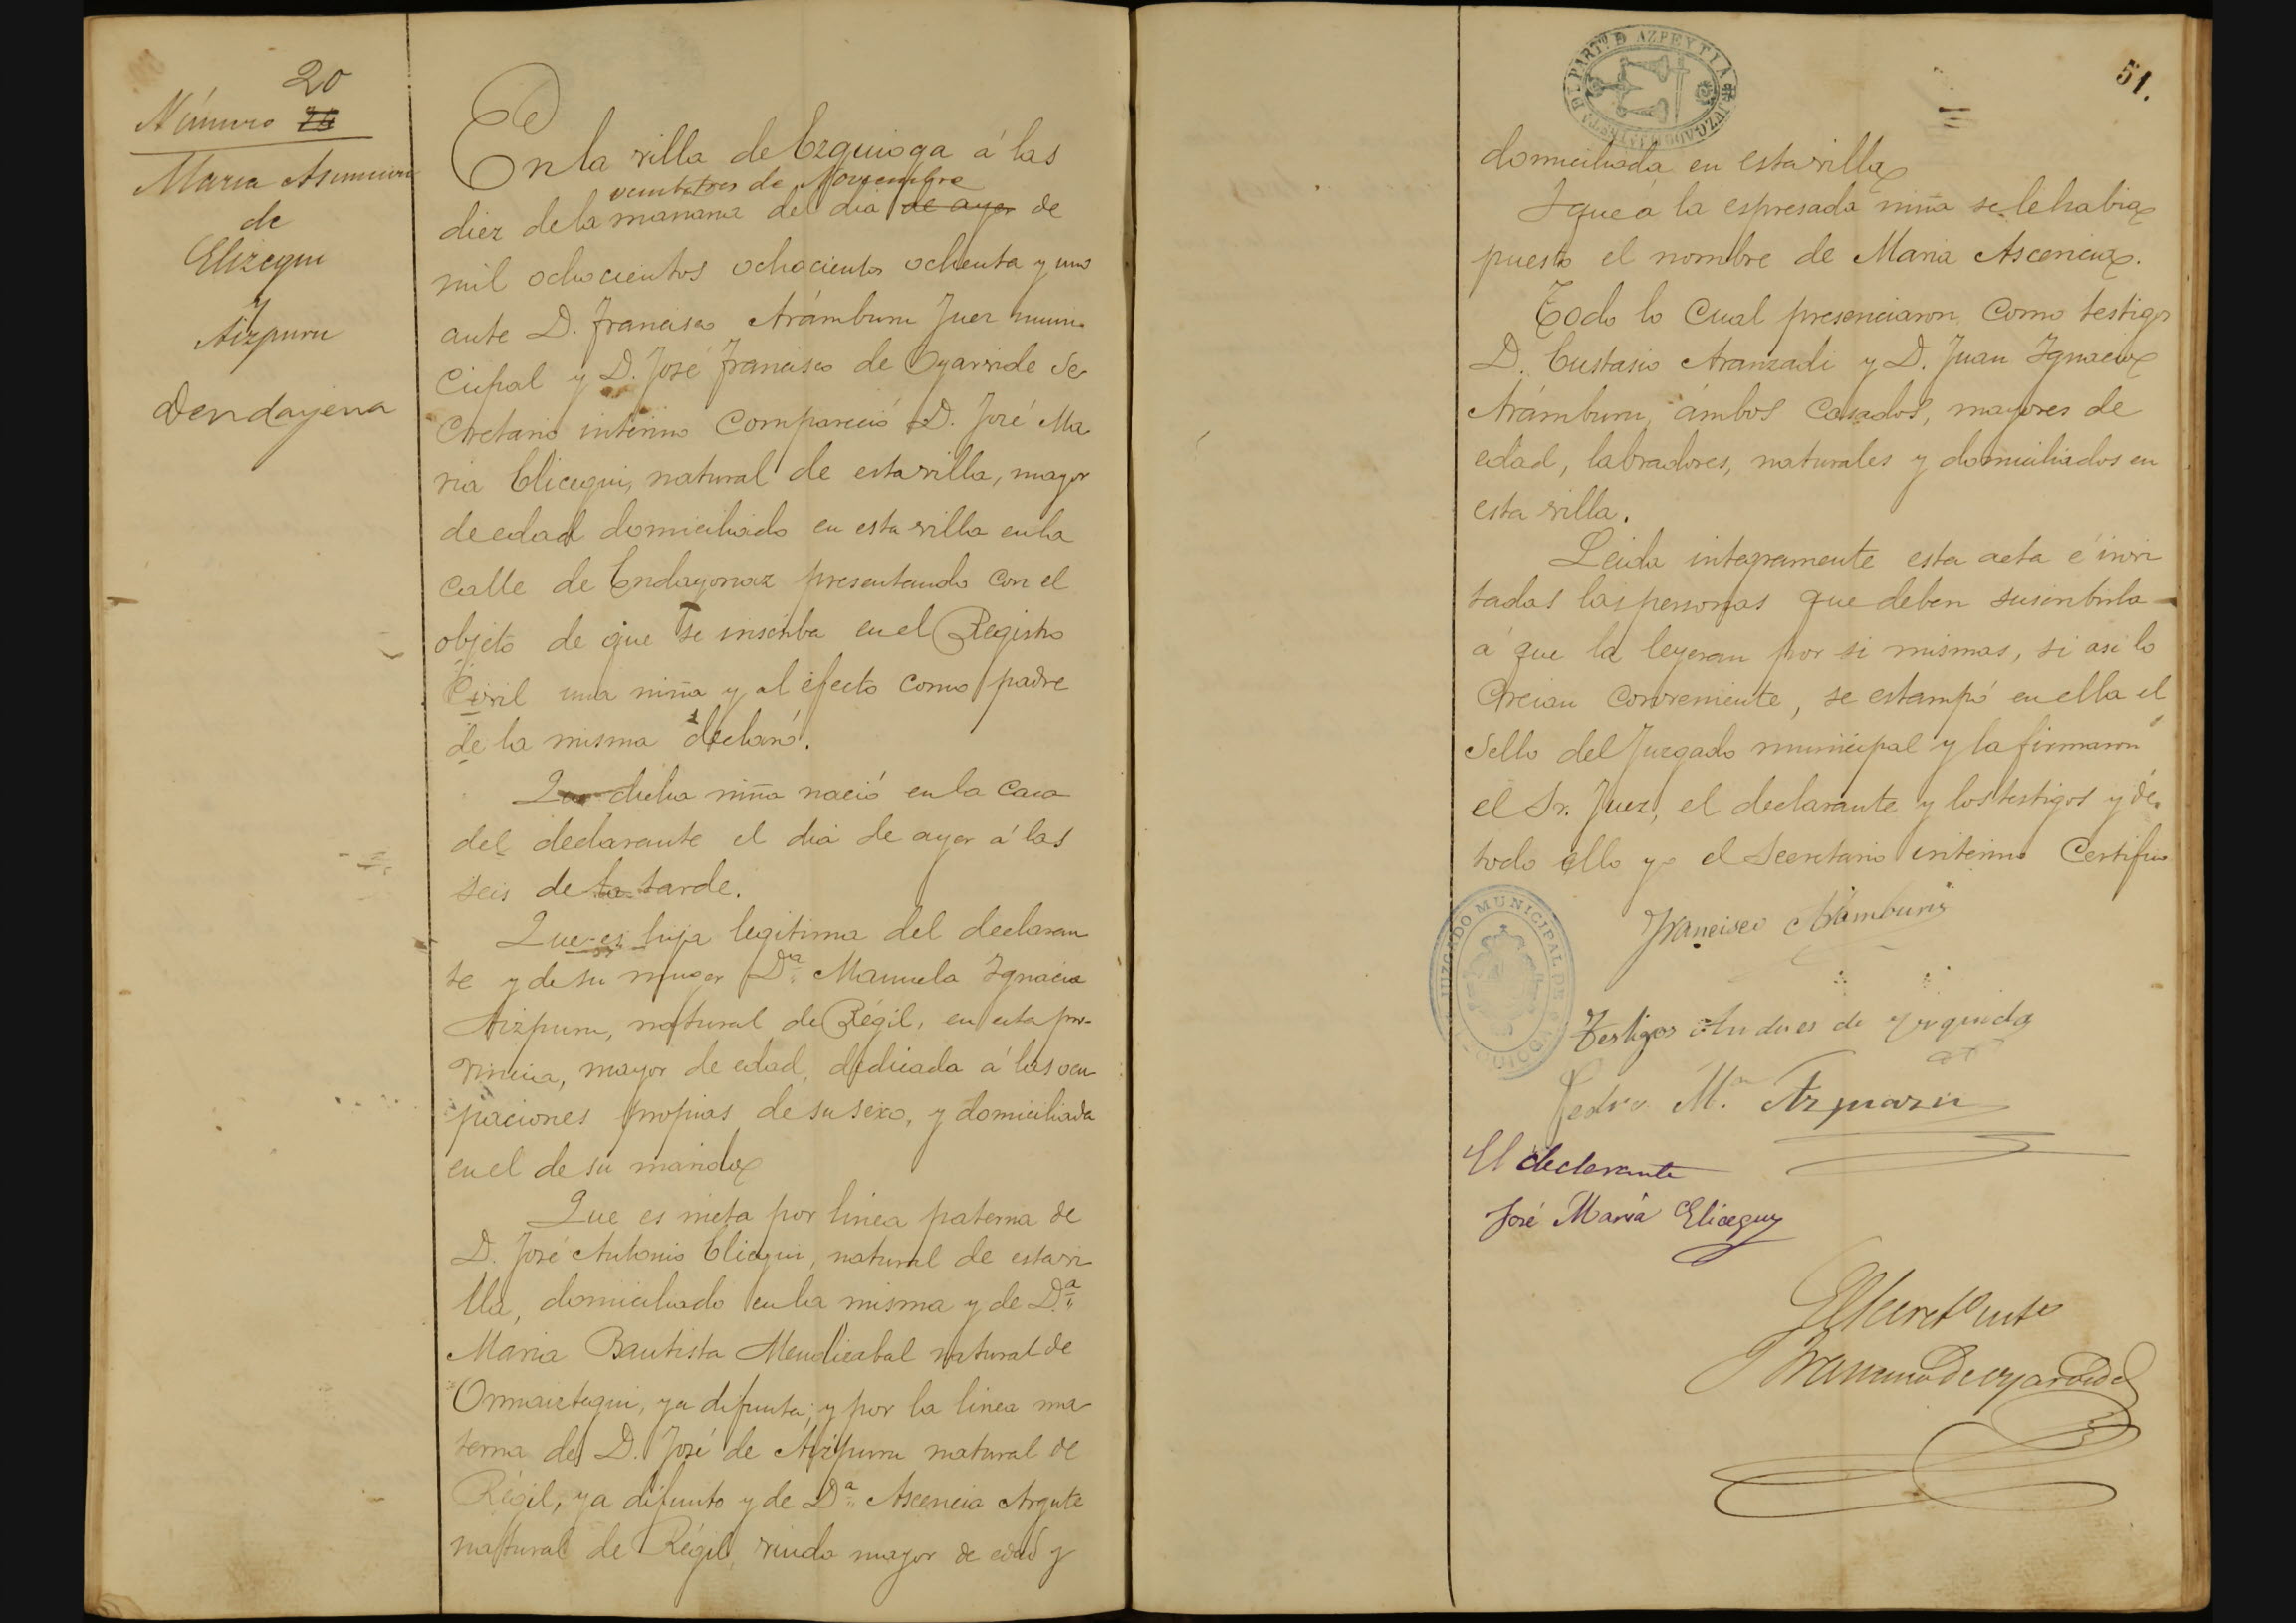 20
Número 26
Maria Asuncion
de
Elizegui
y
Aizpuru
Dendayena
En la villa de Ezquioga á las
veintetres de Noviembre
diez de la mañana del dia de ayer de
mil ochocientos ochocientos ochenta y uno
ante D. Francisco Arámburu Juez muni-
cipal y D. José Francisco de Oyarvide Se
cretario interino Compareció D. José Ma
ria Elicegui, natural de esta villa, mayor
de edad domiciliado en esta villa en la
Calle de Endayonaz presentando con el
objeto de que se inscriba en el Registro
Civil una niña y al efecto como padre
de la misma declaró.
Que dicha niña nació en la Casa
del declarante el dia de ayer á las
seis de la tarde.
Que es hija legitima del declaran
te y de su muger Dª Manuela Ignacia
Aizpuru, natural de Régil, en esta pro-
vincia, mayor de edad, dedicada á las ocu
paciones propias de su sexo, y domiciliada
en el de su marido
Que es nieta por linea paterna de
D. José Antonio Elicegui, natural de esta vi
lla, domiciliado en la misma y de Dª
Maria Bautista Mendicabal natural de
Ormaiztegui, ya difunta; y por la linea ma
terna de D. José de Aizpuru natural de
Régil, ya difunto y de Dª Ascencia Argute
natural de Régil, viuda mayor de edad y
PARTº D AZPEYTIA
51.
domiciliada en esta villa
Y que á la espresada niña se le habia
puesto el nombre de Maria Ascencia.
Todo lo cual presenciaron como testigos
D. Eustasio Aranzadi y D. Juan Ignacio
Arámburu, ámbos Casados, mayores de
edad, labradores, naturales y domiciliados en
esta villa.
Leida integramente esta acta é invi
tadas las personas que deben suscribirla
á que la leyeran por si mismas, si asi lo
Creian Conveniente, se estampó en ella el
Sello del Juzgado municipal y la firmaron
el Sr. Juez, el declarante y los testigos y de
todo ello yo el Secretario interino Certifico
Francisco Aramburu
JUZGADO MUNICIPAL DE
Testigos Andres de
Pedro Mª
El declarante
José Maria Eliceguy
El Secretº intº